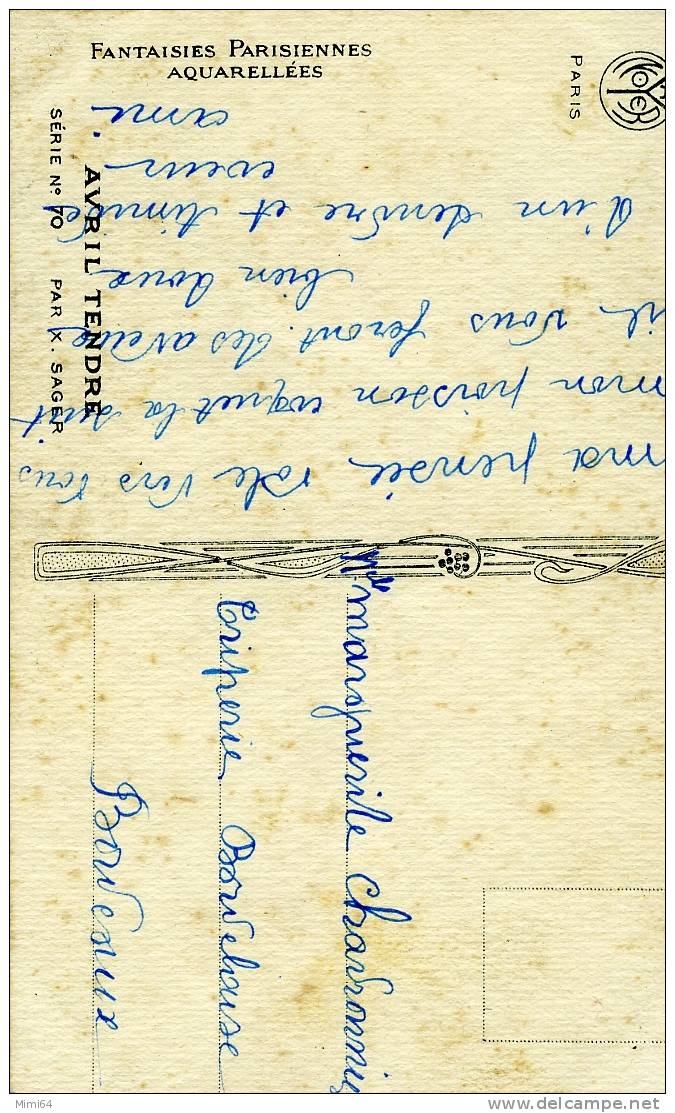 FANTAISIES PARISIENNES
AQUARELLÉES
NOYER
PARIS
AVRIL TENDRE
SÉRIE N° 70 PAR X. SAGER
ma pensée vole vers vous
mon poisson coquet la suit
il vous feront des aveux
bien doux
d'un tendre et timide
ami
Mlle Marguerite Chavronnier
Triperie Bordelaise
Bordeaux
Mimi64
delcampe.net